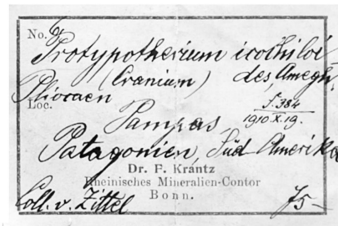 No. 6
Protypotherium icochiloi
(Cranium) des. Amegh.
Pliocaen
Loc.
S. 384
1910 X. 19.
Pampas,
Patagonien, Süd Amerika
Dr. F. Krantz
Rheinisches Mineralien-Contor
Bonn.
Coll. v. Zittel 75-